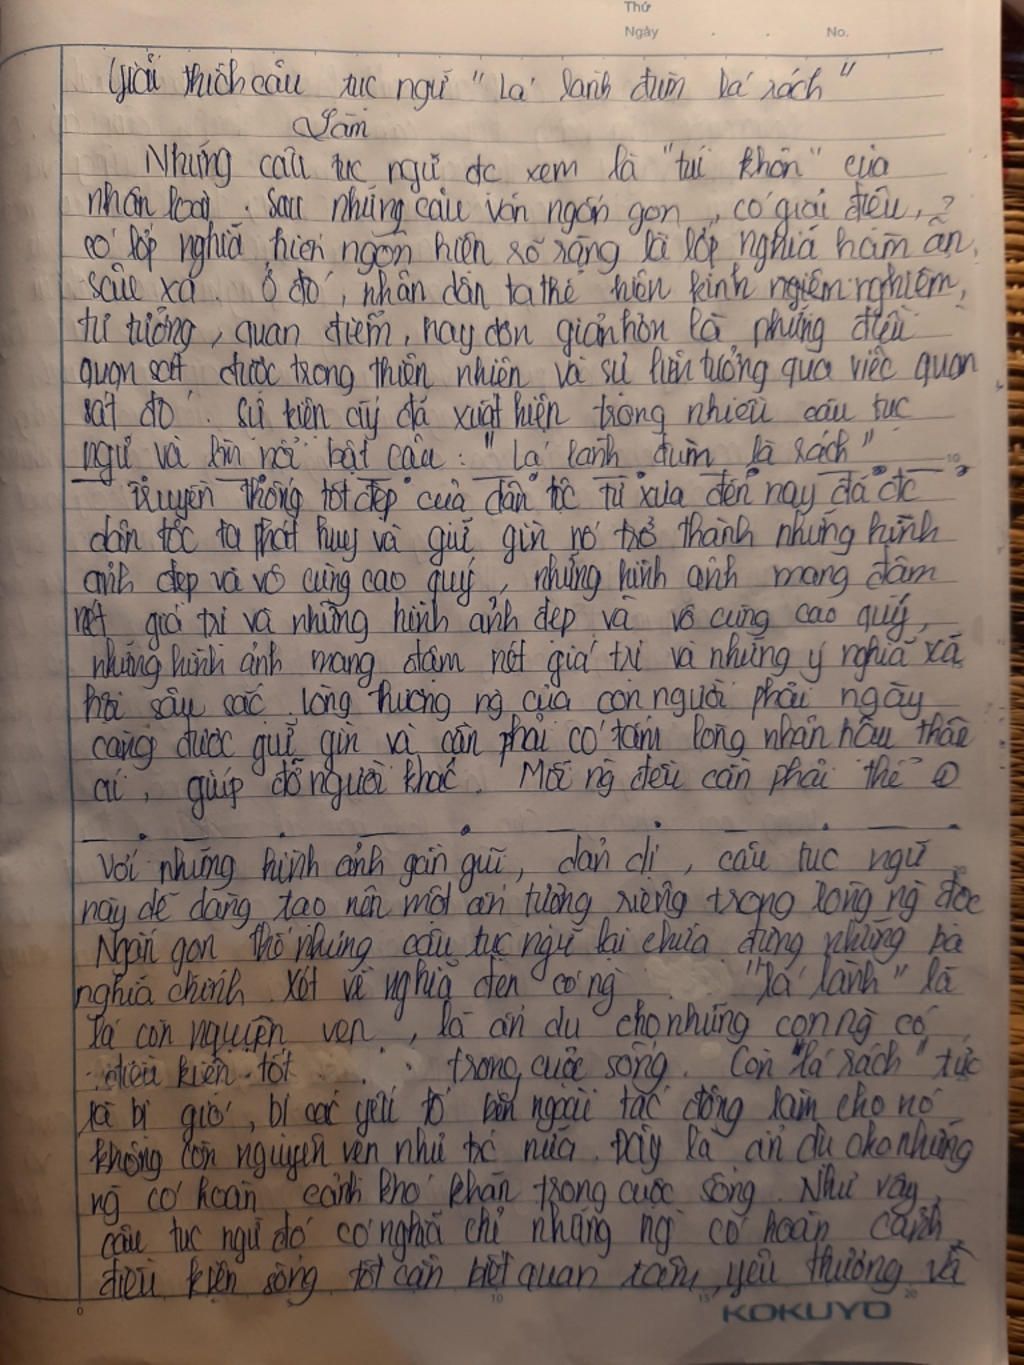 Thứ
Ngày . . No.
Giải thích câu tục ngữ "lá lành đùm lá rách"
Làm
Những câu tục ngữ đc xem là "túi khôn" của
nhân loại. Sau những câu văn ngắn gọn, có giai điệu,
có lớp nghĩa hiển ngôn hiện rõ ràng là lớp nghĩa hàm ẩn,
sâu xa. Ở đó, nhân dân ta thể hiện kinh ngiệm nghiệm,
tư tưởng, quan điểm, hay đơn giản hơn là những điều
quan sát được trong thiên nhiên và sự liên tưởng qua việc quan
sát đó. Sự kiện ấy đã xuất hiện trong nhiều câu tục
ngữ và nổi bật câu: "lá lành đùm lá rách"
Truyền thống tốt đẹp của dân tộc từ xưa đến nay đã đc
dân tộc ta phát huy và giữ gìn nó trở thành những hình
ảnh đẹp và vô cùng cao quý, những hình ảnh mang đậm
nét giá trị và những hình ảnh đẹp và vô cùng cao quý,
những hình ảnh mang đậm nét giá trị và những ý nghĩa xã
hội sâu sắc. lòng thương ng của con người phải ngày
càng được giữ gìn và cần phải có tấm lòng nhân hậu thân
ái, giúp đỡ người khác. Mỗi ng đều cần phải thế
Với những hình ảnh gần gũi, dản dị, câu tục ngữ
này dễ dàng tạo nên một ấn tượng riêng trong lòng ng đọc
Ngắn gọn thế nhưng câu tục ngữ lại chứa đựng những
nghĩa chính. Xét về nghĩa đen có ng "lá lành" là
lá còn nguyên vẹn, là ẩn dụ cho những con ng có
điều kiện tốt trong cuộc sống. Còn "lá rách" tức
là bị gió, bị các yếu tố bên ngoài tác động làm cho nó
không còn nguyên vẹn như trc nữa. Đây là ẩn dụ cho những
ng có hoàn cảnh khó khăn trong cuộc sống. Như vậy,
câu tục ngữ đó có nghĩa chỉ những ng có hoàn cảnh,
điều kiện sống tốt cần biết quan tâm, yêu thương và
KOKUYO